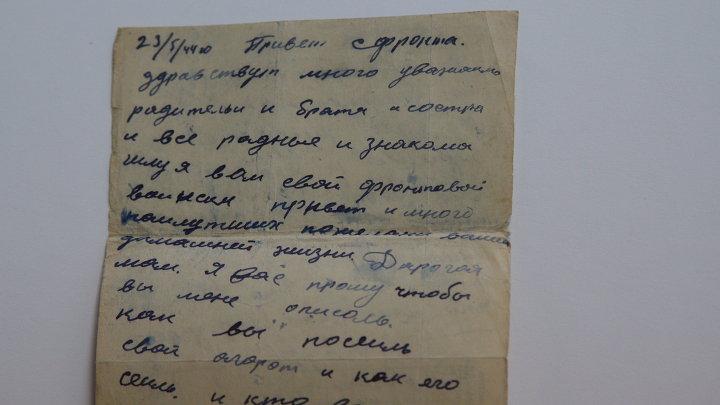 23/5/44го Привет с фронта.
Здравствуйт много уважаемь
радительи и братя и состра
и все радные и знакома
шлю я вам свой фронтовой
воинским привет и много
наилутших пожелани вашей
домашней жизни Дарогая
мам. Я вас прошу чтобы
вы мене описаль.
как вы посеиль
свой агарот и как его
сеиль. и кто